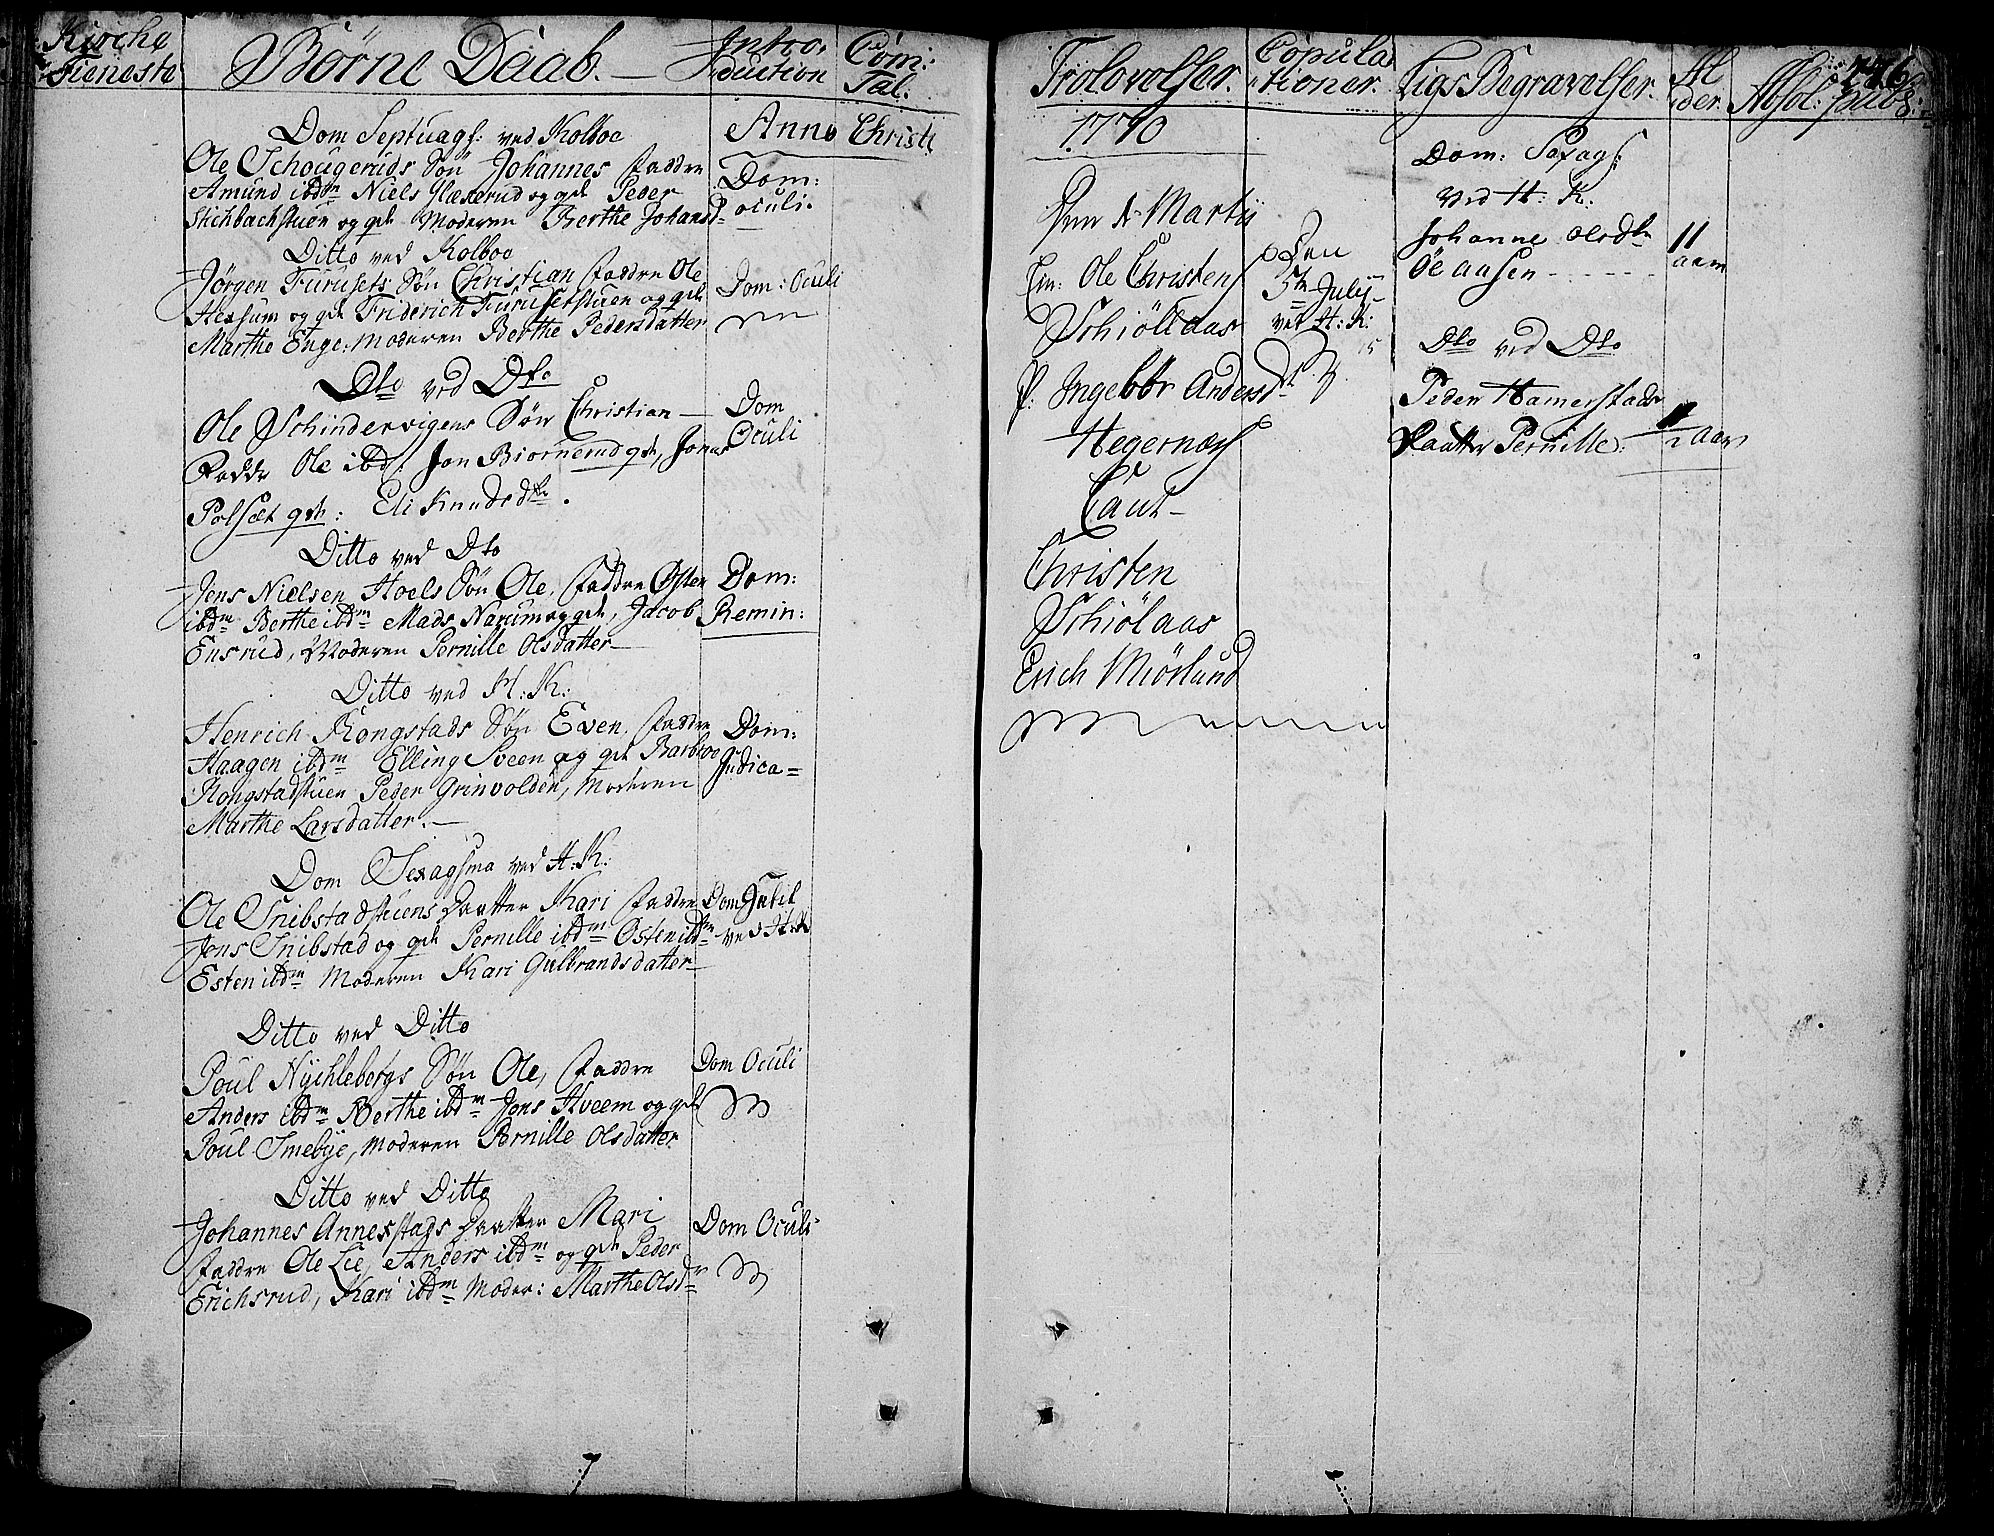 Kirche
Tieneste
Børne Daab. —
Intro-
duction
Com:
Tal.
Dom Septuags: ved Kolboe
Anno Christi
Ole Schougeruds Søn Johannes Faddre
Amund ibdm Niels Glæserud og qd Peder
Stichbachstuen og qd Moderen Berthe Johansd
Dom:
oculi.
Ditto ved Kolboe
Jörgen Furusets Søn Christian Faddre Ole
Hexsum og qd Friderich Furusetstuen og qd
Marthe Enge: Moderen Berthe Pedersdatter
Dom: Oculi
Dto ved Dto
Ole Schindervigens Søn Christian —
Faddr Ole ibd: Jon Biornerud qd, Jonas
Polset qd: Eli Knudsdtr.
Dom
Oculi
Ditto ved Dto
Jens Nielsen Hoels Søn Ole, Faddre Østen
ibdm Berthe ibdm Mads Narum og qd, Jacob
Ensrud, Moderen Pernille Olsdatter —
Dom:
Remin:
Ditto ved H: K:
Henrich Kongstads Søn Even, Faddre
Haagen ibdm Elling Sveen og qd Barbroe
Kongstadstuen Peder Grinvolden, Moderen
Marthe Larsdatter. —
Dom:
Judica =
Dom Sexagsma ved H: K:
Ole Snibstadstuens Daatter Kari Faddre
Jens Snibstad og qd Pernille ibdm Østen ibdm
Esten ibdm Moderen Kari Gulbrandsdatter —
Dom Jubil
ved H: K
Ditto ved Ditto
Poul Nychlebergs Søn Ole, Faddre
Anders ibdm Berthe ibdm Jens Hveem og qd
Poul Smebye, Moderen Pernille Olsdatter
Dom Oculi
Ditto ved Ditto
Johannes Annexstads Daatter Mari
Faddre Ole Lie, Anders ibdm og qd Peder
Erichsrud, Kari ibdm Moder: Marthe Olsdr
Dom Oculi
Trolovelser.
Copula
tioner.
Ligs Begravelser.
Al
der.
Absol: pub:
1770
Martij
Em: Ole Christens
Schiöllaas
P: Ingebbr Andersd
Hegernæs
Caut —
Christen
Schiölaas
Erich Miörlund
Den
5te July
ved H: K:
Dom: Sexags:
ved H: K:
Johanne Olsdtr
Øeaasen - - - - -
11
aar
Dto ved Dto
Peder Hamerstads
Daatter Pernille:
1/2 Aar